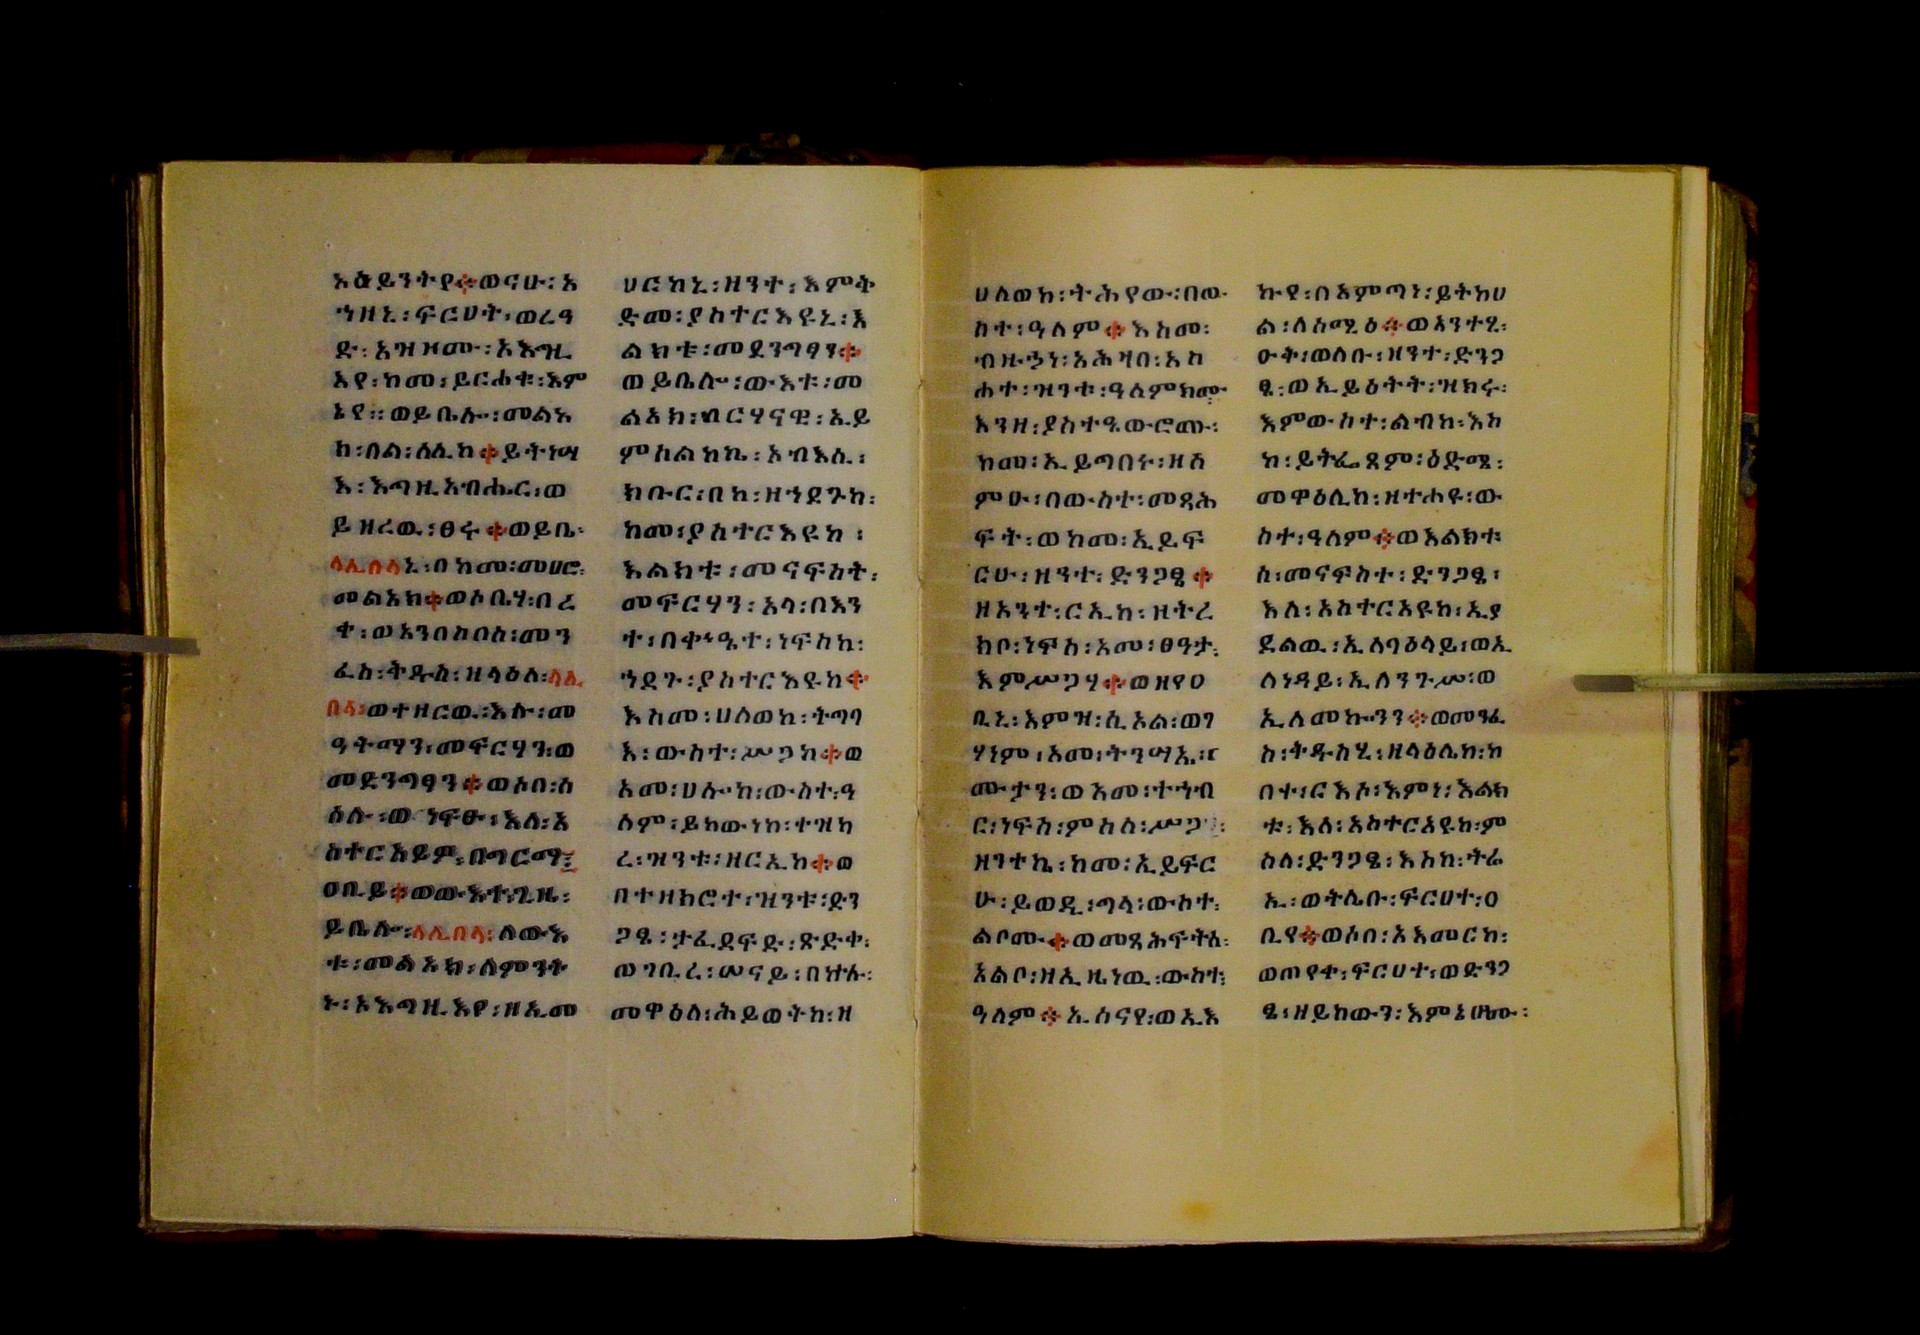 አፅይንትየ፨ወናሁ፡አ
ኀዘኒ፡ፍርሀት፡ወረዓ
ድ፡አዝዘሙ፡አእጓ
እየ፡ከመ፡ይርሐቁ፡እም
ኔየ፡፡ወይቤሎ፡መልአ
ክ፡በል፡ለሊከ፨ይትነሣ
እ፡እግዚአብሔር፡ወ
ይዘረዉ፡ፀሩ፨ወይቤ፡
ላሊበላኒ፡በከመ፡መሀሮ፡
መልአክ፨ወሶቤሃ፡በረ
ቀ፡ወአንበስበሰ፡መን
ፈስ፡ቅዱስ፡ዘላዕለ፡ላሊ
በላ፡ወተዘርዉ፡እሉ፡መ
ዓትማን፡መፍርሃን፡ወ
መደንግፃን፨ወሶበ፡ሰ
ዕሉ፡ወነፍፁ፡እለ፡አ
ስተርአይዎ፡በግርማ፡
ዐቢይ፨ወውእቱ፡ጊዜ፡
ይቤሎ፡ላሊበላ፡ለውእ
ቱ፡መልአክ፡ለምንት
ኑ፡አእግዚእየ፡ዘአመ
ሀርከኒ፡ዘንተ፡እምቅ
ድመ፡ያስተርእዩኒ፡እ
ልክቱ፡መደንግፃን፨
ወይቤሎ፡ውእቱ፡መ
ልአክ፡ብርሃናዊ፡ኢይ
ምስልከኬ፡ኦብእሲ፡
ክቡር፡በከ፡ዘኀደጉከ፡
ከመ፡ያስተርእዩከ፡
እልክቱ፡መናፍስት፡
መፍርሃን፡አላ፡በእን
ተ፡በቍዔተ፡ነፍስከ፡
ኀደጉ፡ያስተርእዩከ፨
እስመ፡ሀለወከ፡ትግባ
እ፡ውስተ፡ሥጋከ፨ወ
አመ፡ሀሎከ፡ውስተ፡ዓ
ለም፡ይከውነከ፡ተዝካ
ረ፡ዝንቱ፡ዘርኢከ፨ወ
በተዘክሮተ፡ዝንቱ፡ድን
ጋፄ፡ታፈደፍድ፡ጽድቀ፡
ወገቢረ፡ሠናይ፡በኵሉ፡
መዋዕለ፡ሕይወትከ፡ዘ
ሀለወከ፡ትሕየው፡በው
ስተ፡ዓለም፨እስመ፡
ብዙኃነ፡አሕዛበ፡አስ
ሐተ፡ዝንቱ፡ዓለምክሙ
እንዘ፡ያስተዔውሮሙ፡
ከመ፡ኢይግበሩ፡ዘሰ
ምዑ፡በውስተ፡መጻሕ
ፍት፡ወከመ፡ኢይፍ
ርሁ፡ዘንተ፡ድንጋፄ፨
ዘአንተ፡ርኢከ፡ዘትረ
ክቦ፡ነፍስ፡አመ፡ፀዓታ፡
እምሥጋሃ፨ወዘየዐ
ቢኒ፡እምዝ፡ሲኦል፡ወገ
ሃነም፡አመ፡ትንሣኤ፡
ሙታን፡ወአመ፡ተኀብ
ር፡ነፍስ፡ምስለ፡ሥጋ፡
ዘንተኬ፡ከመ፡ኢይፍር
ሁ፡ይወዲ፡ግላ፡ውስተ፡
ልቦሙ፨ወመጻሕፍትሰ፡
አልቦ፡ዘኢዜነዉ፡ውስተ፡
ዓለም፨ኢሰናየ፡ወኢእ
ኩየ፡በአምጣነ፡ይትከሀ
ል፡ለሰሚዕ፨ወአንተሂ፡
ዑቅ፡ወለቡ፡ዘንተ፡ድንጋ
ፄ፡ወኢይዕትት፡ዝክሩ፡
እምውስተ፡ልብከ፡እስ
ከ፡ይትፌጸም፡ዕድሜ፡
መዋዕሊከ፡ዘተሐዩ፡ው
ስተ፡ዓለም፨ወእልክቱ
ሰ፡መናፍስተ፡ድንጋፄ፡
እለ፡አስተርአዩከ፡ኢያ
ደልዉ፡ኢለባዕላይ፡ወኢ
ለነዳይ፡ኢለንጉሥ፡ወ
ኢለመኰንን፨ወመንፈ
ስ፡ቅዱስሂ፡ዘላዕሌከ፡ከ
በተ፡ርእሶ፡እምነ፡እልክ
ቱ፡እለ፡አስተርአዩከ፡ም
ስለ፡ድንጋፄ፡እስከ፡ትሬ
ኢ፡ወትሌቡ፡ፍርሀተ፡ዐ
ቢየ፨ወሶበ፡አእመርከ፡
ወጠየቀ፡ፍርሀተ፡ወድንጋ
ፄ፡ዘይከውን፡እምኔሆሙ፡